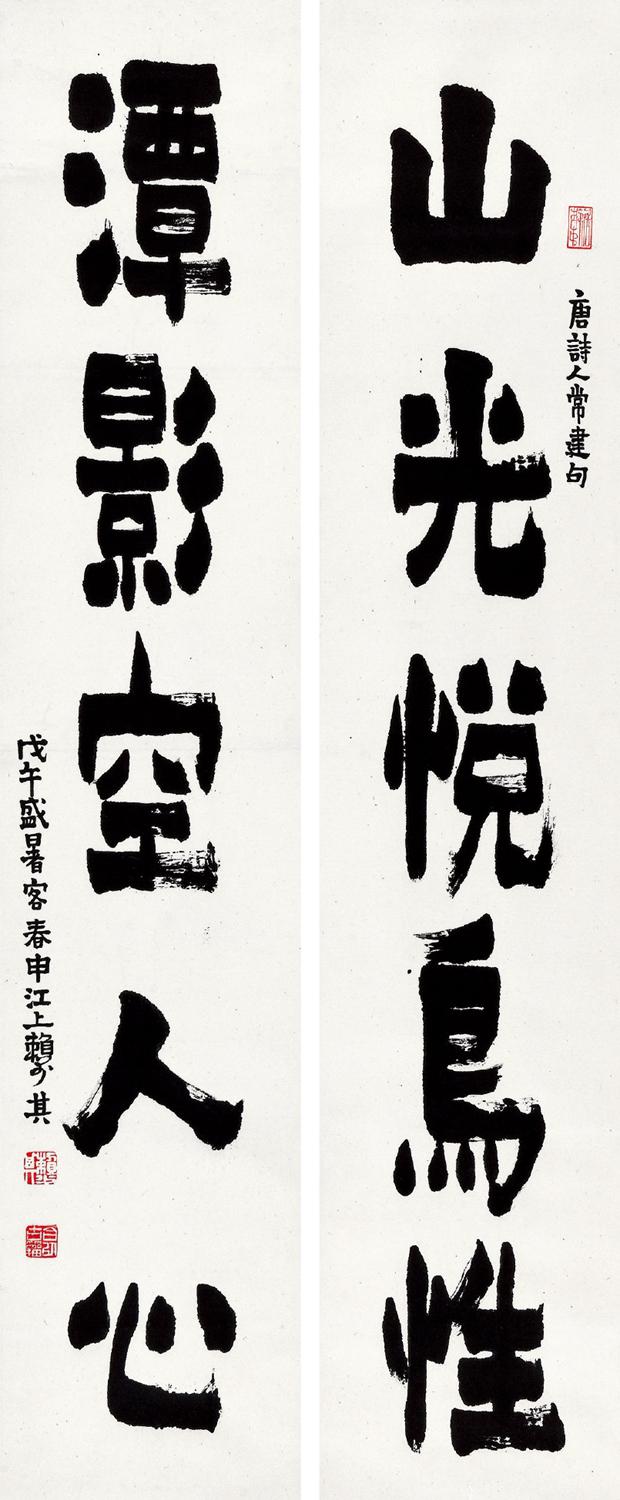 唐詩人常建句
山光悅鳥性
潭影空人心
戊午盛暑客春申江上賴少其